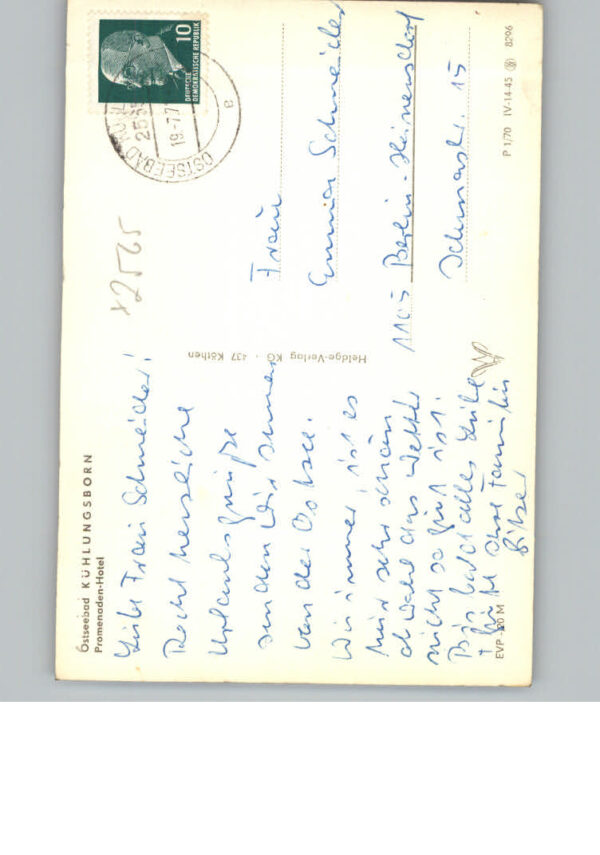 Ostseebad KÜHLUNGSBORN
Promenaden-Hotel
Liebe Frau Schneider!
Recht herzliche
Urlaubsgrüße
senden wir Ihnen
von der Ostsee.
Wie immer, ist es
hier sehr schön
obwohl das Wetter
nicht so gut ist.
Bis bald alles Gute
Ihre Familie
EVP -20 M
Heldge-Verlag KG · 437 Köthen
82565
10
DEUTSCHE
DEMOKRATISCHE REPUBLIK
OSTSEEBAD
19.-7.7
e
Frau
Schneider
Berlin-Heinersdorf
15
P 1/70 IV-14-45 8296